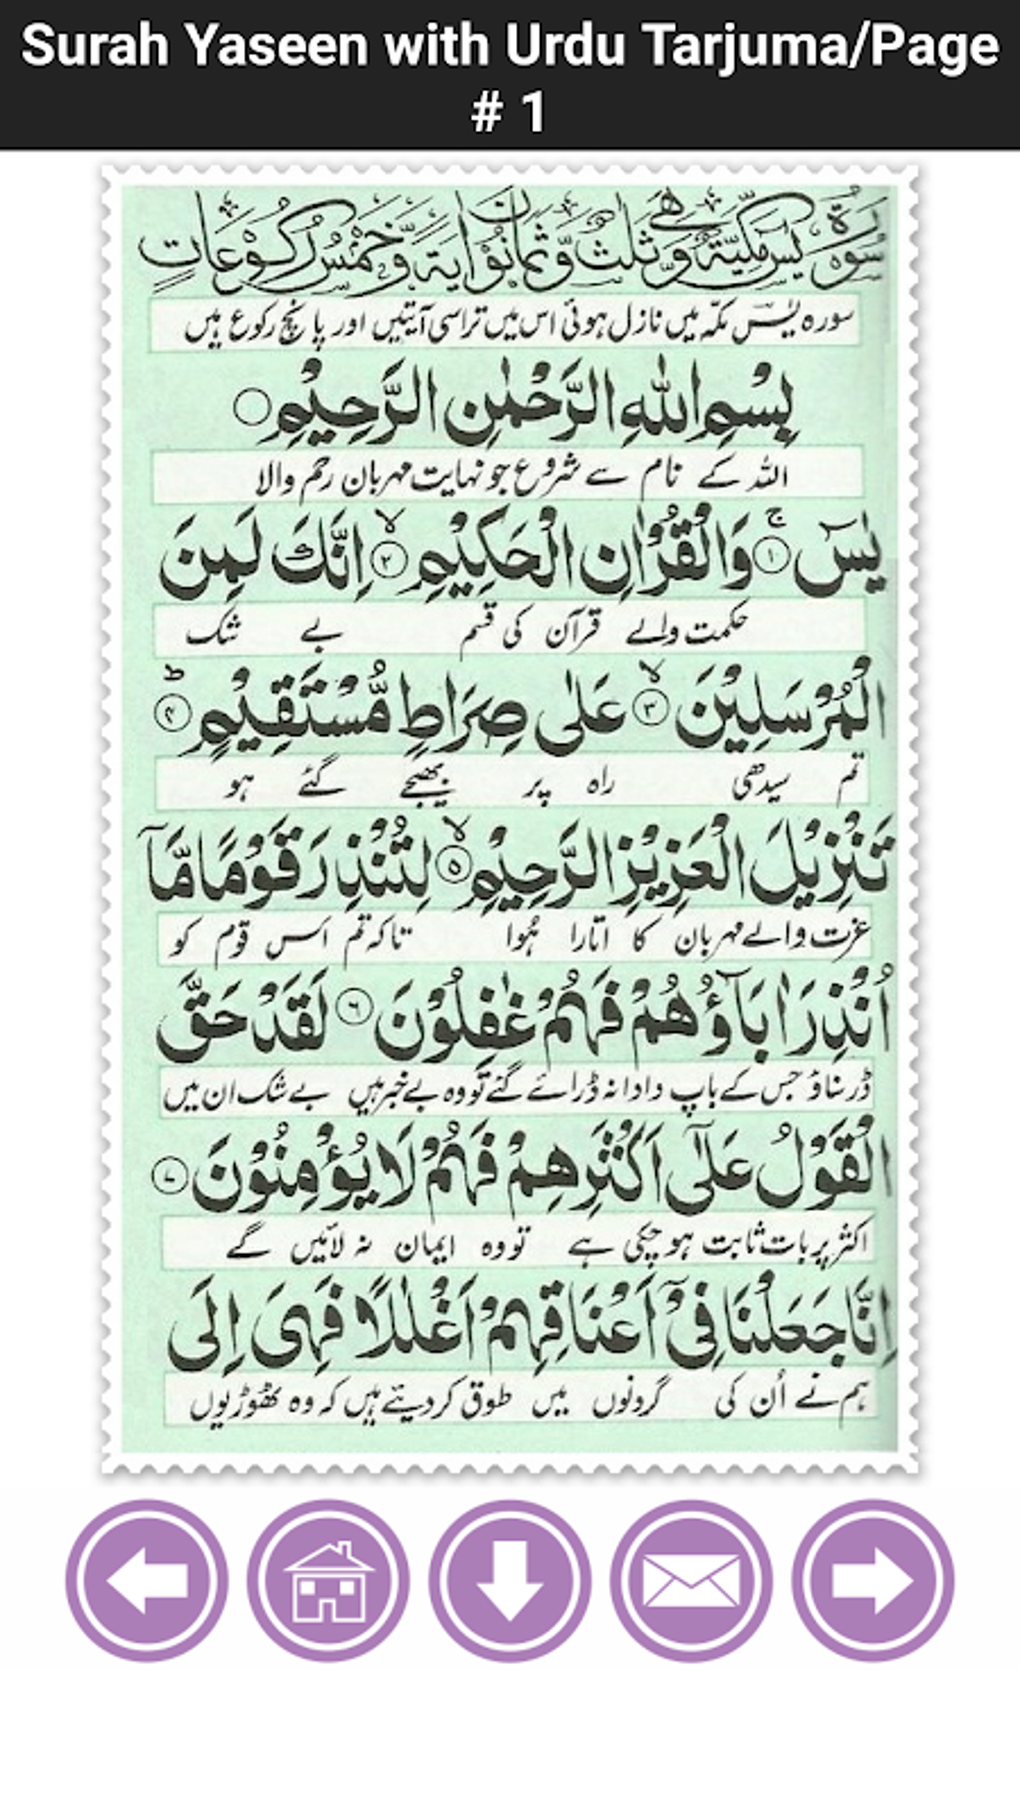 Surah Yaseen with Urdu Tarjuma/Page
# 1
سُوْرَةُ يٰسٓ مَكِّيَّةٌ وَّهِيَ ثَلٰثٌ وَّثَمَانُوْنَ اٰيَةً وَّخَمْسُ رُكُوْعَاتٍ
سورہ یٰسٓ مکّہ میں نازل ہوئی اس میں تراسی آیتیں اور پانچ رکوع ہیں
بِسْمِ اللّٰهِ الرَّحْمٰنِ الرَّحِيْمِ ○
اللہ کے نام سے شروع جو نہایت مہربان رحم والا
يٰسٓ ﴿۱﴾ۚ وَالْقُرْاٰنِ الْحَكِيْمِ ﴿۲﴾ۙ اِنَّكَ لَمِنَ
حکمت والے قرآن کی قسم بے شک
الْمُرْسَلِيْنَ ﴿۳﴾ۙ عَلٰى صِرَاطٍ مُّسْتَقِيْمٍ ﴿۴﴾ؕ
تم سیدھی راہ پر بھیجے گئے ہو
تَنْزِيْلَ الْعَزِيْزِ الرَّحِيْمِ ﴿۵﴾ۙ لِتُنْذِرَ قَوْمًا مَّاۤ
عزت والے مہربان کا اتارا ہُوا تاکہ تم اس قوم کو
اُنْذِرَ اٰبَآؤُهُمْ فَهُمْ غٰفِلُوْنَ ﴿۶﴾ لَقَدْ حَقَّ
ڈر سناؤ جس کے باپ دادا نہ ڈرائے گئے تو وہ بے خبر ہیں بے شک ان میں
الْقَوْلُ عَلٰٓى اَكْثَرِهِمْ فَهُمْ لَا يُؤْمِنُوْنَ ﴿۷﴾
اکثر پر بات ثابت ہو چکی ہے تو وہ ایمان نہ لائیں گے
اِنَّا جَعَلْنَا فِيْٓ اَعْنَاقِهِمْ اَغْلٰلًا فَهِيَ اِلَى
ہم نے اُن کی گردنوں میں طوق کر دیئے ہیں کہ وہ ٹھوڑیوں